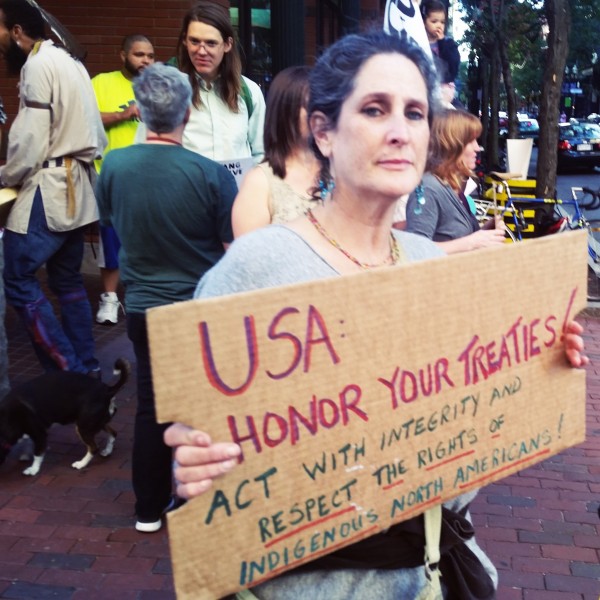 USA:
HONOR YOUR TREATIES!
ACT WITH INTEGRITY AND
RESPECT THE RIGHTS OF
INDIGENOUS NORTH AMERICANS!